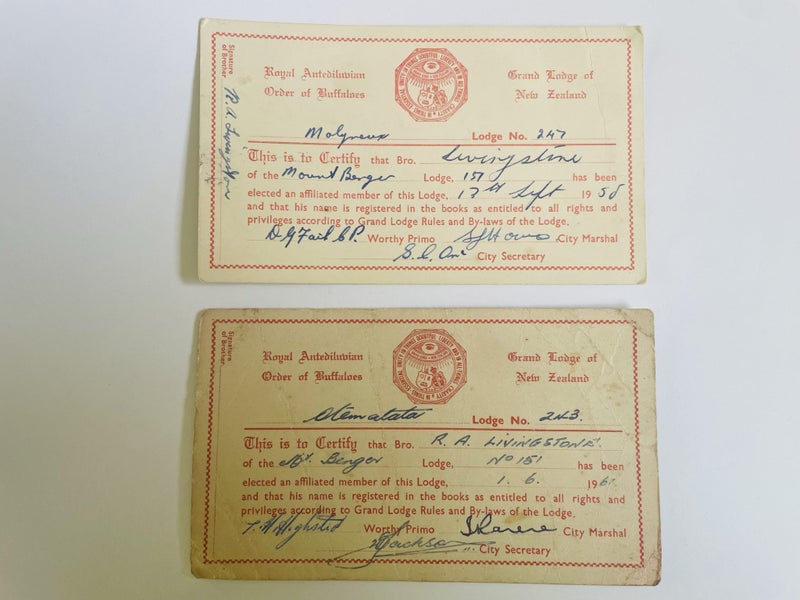 Signature
of Brother
R. A. Livingstone
Royal Antediluvian
Order of Buffaloes
Grand Lodge of
New Zealand
Molyneux Lodge No. 247
This is to Certify that Bro. Livingstone
of the Mount Benger Lodge, 151 has been
elected an affiliated member of this Lodge, 13th Sept 1958
and that his name is registered in the books as entitled to all rights and
privileges according to Grand Lodge Rules and By-laws of the Lodge.
Worthy Primo City Marshal
City Secretary
Signature
of Brother
Royal Antediluvian
Order of Buffaloes
Grand Lodge of
New Zealand
Otematata Lodge No. 243.
This is to Certify that Bro. R. A. LIVINGSTONE.
of the Mt. Benger Lodge, No 151 has been
elected an affiliated member of this Lodge, 1. 6. 1961
and that his name is registered in the books as entitled to all rights and
privileges according to Grand Lodge Rules and By-laws of the Lodge.
Worthy Primo City Marshal
Jackson City Secretary